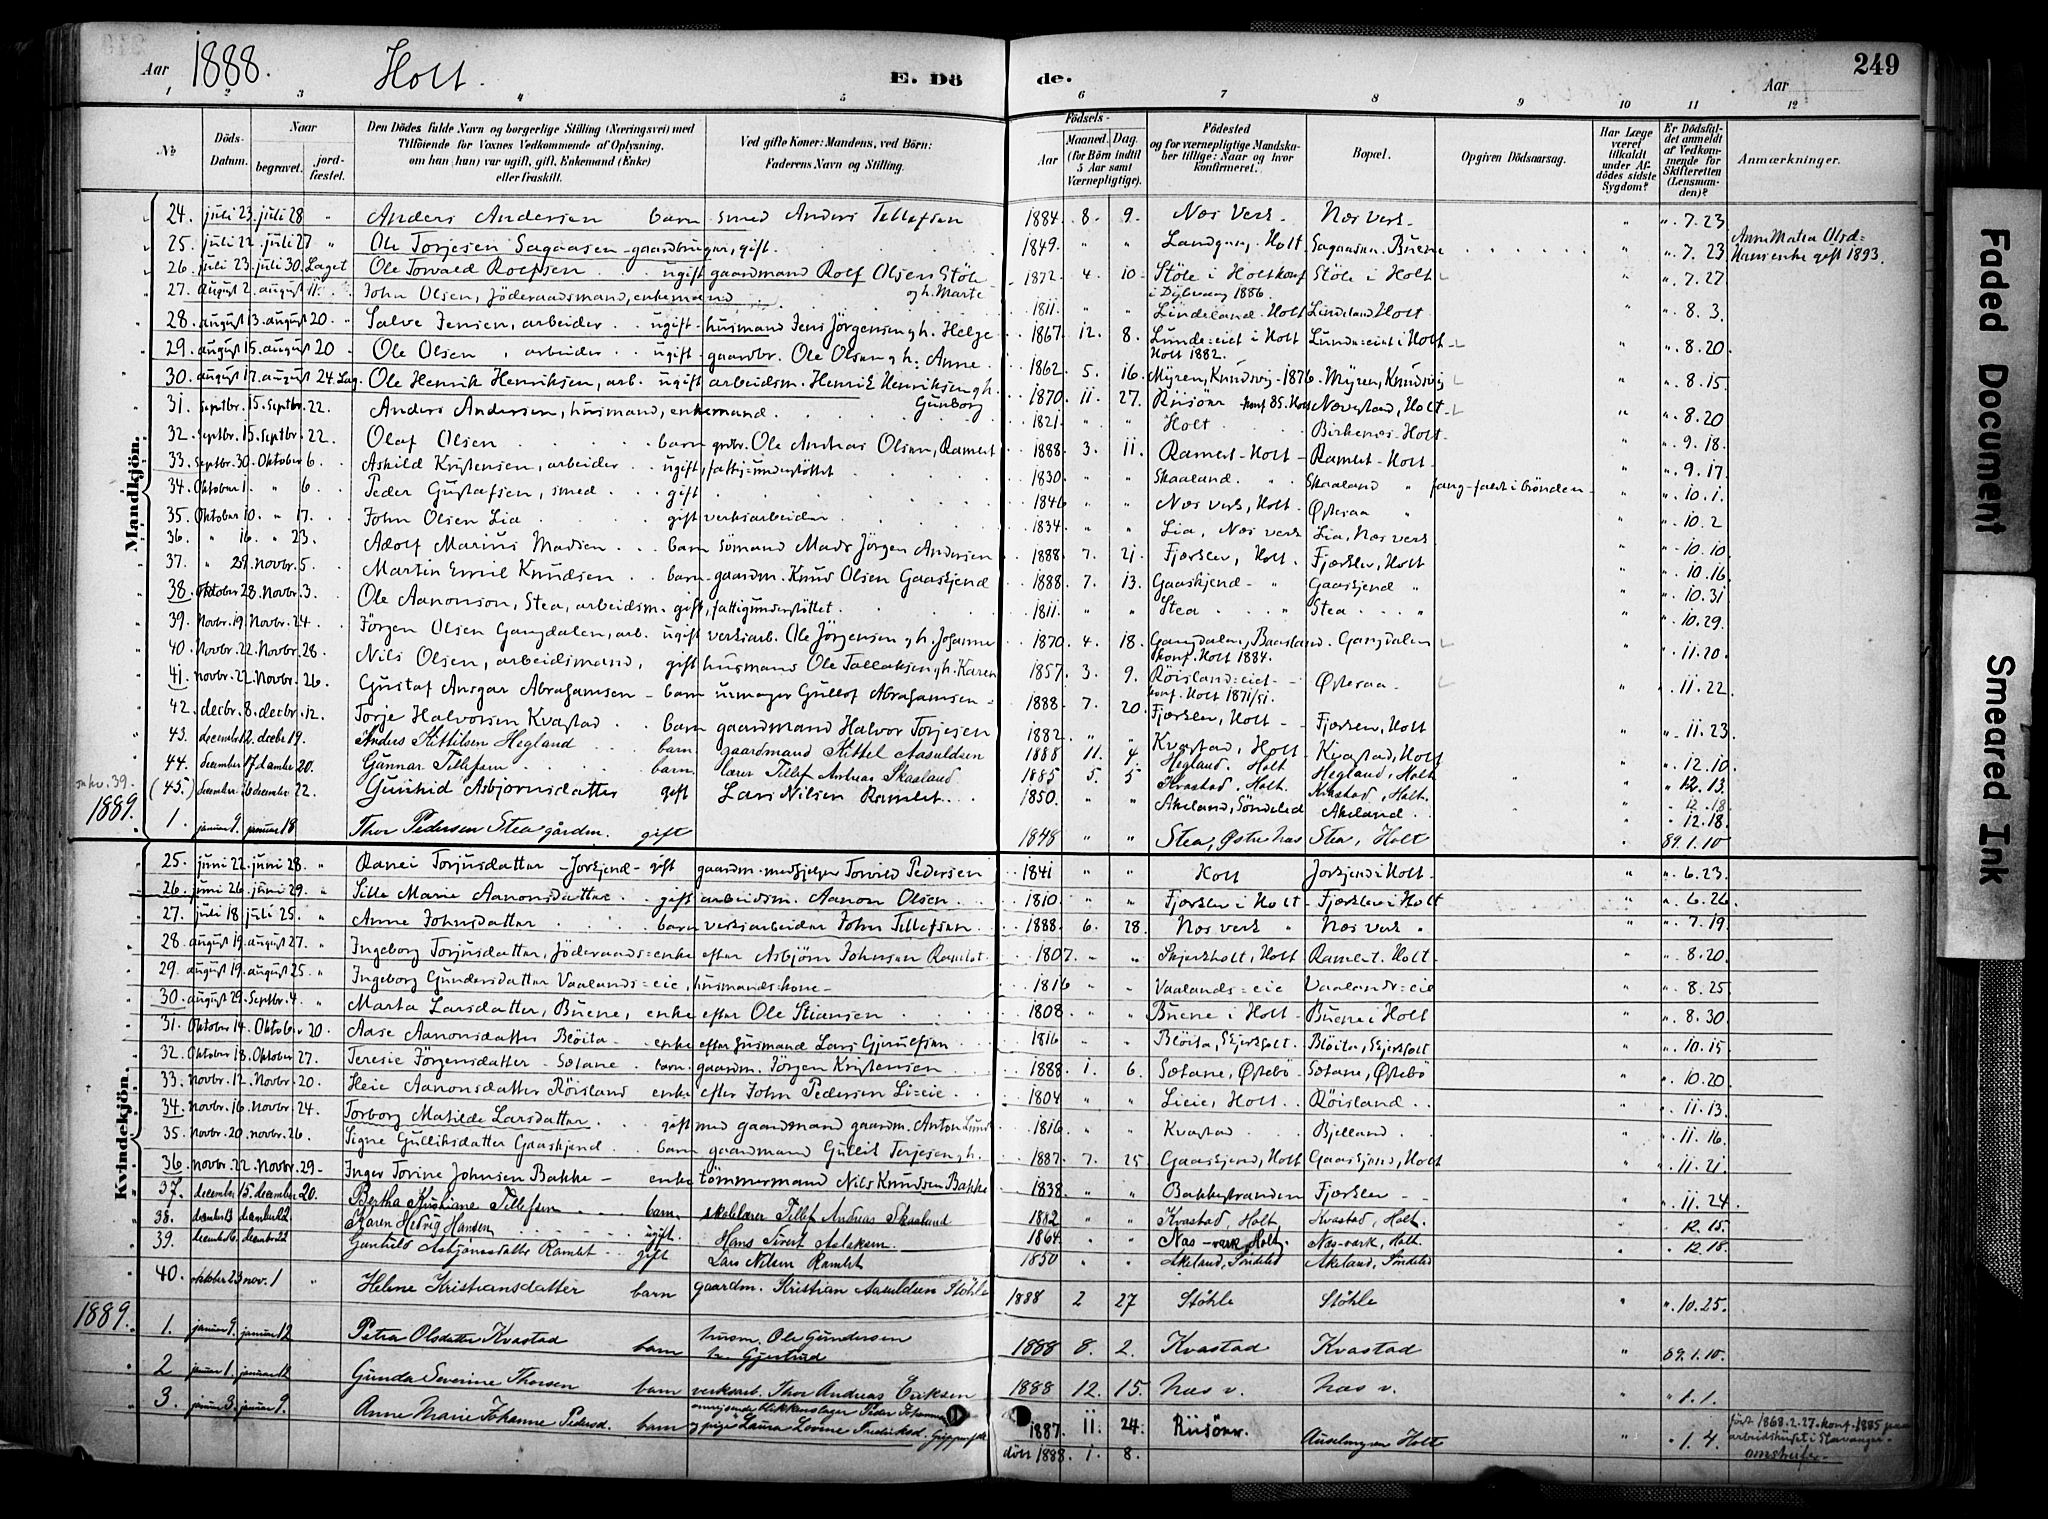 Aar 1888. Holt. E. Dö de. Aar 249
1 2 3 4 5 6 7 8 9 10 11 12
№ Döds-Datum. Naar begravet. jordfæstet. Den Dödes fulde Navn og borgerlige Stilling (Næringsvei) med Tilföiende for Voxnes Vedkommende af Oplysning, om han (hun) var ugift, gift, Enkemand (Enke) eller fraskilt. Ved gifte Koner: Mandens, ved Börn: Faderens Navn og Stilling. Födsels- Aar Maaned. Dag. (for Börn indtil 5 Aar samt Værnepligtige). Födested og for værnepligtige Mandskaber tillige: Naar og hvor konfirmeret. Bopæl. Opgiven Dödsaarsag. Har Læge været tilkaldt under Afdödes sidste Sygdom? Er Dödsfaldet anmeldt af Vedkommende for Skifteretten (Lensmanden)? Anmærkninger.
Mandkjön.
24. juli 23. juli 28 " Anders Andersen barn smed Anders Tellefsen 1884 8. 9. Næs verk Næs verk " " 7. 23
25. juli 22. juli 27 " Ole Torjesen Sagaasen gaardbruger, gift. 1849. " " Landgaar, Holt Sagaasen. Buene " " 7. 23 Anne Matea Olsd= Hans enke gift 1893.
26. juli 23. juli 30. Laget Ole Torvald Rolfsen ugift gaardmand Rolf Olsen Stöle og h. Marte 1872 4. 10. Stöle i Holt konf. i Dybvaag 1886. Stöle i Holt " " 7. 27
27. august 2. august 11. John Olsen, föderaadsmand, enkemand 1811. " " Lindeland Holt Lindeland Holt " " 8. 3.
28. august 13. august 20. " Salve Jensen, arbeider ugift husmand Jens Jörgensen g h. Helge 1867 12. 8. Lunde=eiet i Holt Holt 1882. Lunde=eiet i Holt " " 8. 20
29. august 15. august 20 Ole Olsen, arbeider ugift gaardbr. Ole Olsen g h: Anne 1862 5. 16. Myren, Knudsvig 1876. Myren, Knudsvig " " 8. 15.
30. august 17. august 24. Lag. Ole Henrik Henriksen, arb. ugift arbeidsm. Henrik Henriksen g h. Gunborg 1870 11. 27. Riisöer konf 85. Holt Nævestad, Holt " " 8. 20
31. septbr. 15. septbr. 22. Anders Andersen, husmand, enkemand. 1821. " " Holt Birkenes Holt " " 9. 18.
32. septbr. 15. septbr. 22. Olaf Olsen barn grdbr. Ole Andreas Olsen, Ramlet 1888 3. 11. Ramlet Holt Ramlet Holt " " 9. 17.
33. septbr. 30. Oktober 6. Askild Kristensen, arbeider ugift, fattig=understöttet 1830 " " Skaaland. Skaaland " " " 10. 1.
34. Oktober 1. " 6. Peder Gustafsen, smed gift 1846 " " Næs verk, Holt. Østeraa " " " 10. 2
35. Oktober 10. " 17. John Olsen Lia gift verksarbeider 1834 " " Lia, Næs verk Lia, Næs verk " " 10. 10
36. " 16. " 23. Adolf Marius Madsen barn sömand Mads Jörgen Andersen 1888 7. 21. Fjærslev, Holt Fjærslev, Holt " " 10. 16
37. " 29. Novbr. 5. Martin Emil Knudsen barn gaardm. Knud Olsen Gaaskjend 1888 7. 13. Gaaskjend " Gaaskjend " " " 10. 31
38. Oktober 28. Novbr. 3. Ole Aanonson, Stea, arbeidsm. gift, fattigunderstöttet. 1811. " " Stea " Stea " " " 10. 29.
39. Novbr. 19. Novbr. 24. Jörgen Olsen Gangdalen, arb. ugift verksarb. Ole Jörgensen g h. Johanne 1870 4. 18. Gangdalen, Baasland. konf. Holt 1884. Gangdalen " " 11. 20.
40. Novbr. 22. Novbr. 28. Nils Olsen, arbeidsmand, gift husmand Ole Tallaksen g h. Karen 1857 3. 9. Röisland=eiet konf. Holt 1871/51. Østeraa " " 11. 22.
41. novbr. 22. Novbr. 26. Gustaf Ansgar Abrahamsen barn urmager Gullof Abrahamsen 1888 7. 20. Fjærslev, Holt Fjærslev, Holt " " 11. 23
42. decbr. 8. decbr. 12. Torje Halvorsen Kvastad barn gaardmand Halvor Torjesen 1882 " " Kvastad, Holt Kvastad, Holt " " 12. 10.
43. december 12. decbr 19. Anders Kittilsen Hegland barn gaardmand Kittel Aasuldsen 1888 11. 4. Hegland. Holt Hegland, Holt " 12. 13.
44. december 17 december 20. Gunnar Tellefsen barn lærer Tellef Andreas Skaaland 1885 5. 5 Kvastad. Holt. Kvastad, Holt. " " 12. 18
39.
(45.) december 16 december 22. Gunhild Asbjornsdatter gift Lars Nilsen Ramlet 1850. " " Akeland, Söndeled Akeland " 12. 18.
1889.
1. januar 9. januar 18 Thor Pedersen Stea gården. gift 1848 " " Stea, Østre Næs Stea, Holt " 89. 1. 10
Kvindekjön.
25. juni 22. juni 28. " Ranei Torjusdatter Jorkjend gift gaardm. medhjelper Torvild Pedersen 1841 " " Holt Jorkjend i Holt " " 6. 23.
26. juni 26. juni 29. " Sille Marie Aanonsdatter gift arbeidsm. Aanon Olsen 1810. " " Fjærslev i Holt Fjærslev i Holt " " 6. 26.
27. juli 18 juli 25. " Anne Johnsdatter barn verksarbeider John Tellefsen 1888. 6. 28. Næs verk " Næs verk " " " 7. 19.
28. august 19. august 27. " Ingeborg Torjusdatter, föderaads=enke efter Asbjörn Johnsen Ramlet 1807. " " Skjerkholt, Holt Ramlet. Holt " " 8. 20
29. august 19. august 25. " Ingeborg Gundersdatter Vaalands=eie, husmands kone 1816 " " Vaalands=eie Vaalands=eie " " 8. 25.
30. august 29. Septbr. 4. " Marta Larsdatter, Buene, enke efter Ole Stiansen 1808 " " Buene i Holt Buene i Holt " " 8. 30
31. Oktober 14. Oktober 20 Aase Aanonsdatter Blöita enke efter husmand Lars Gjerulfsen 1816 " " Blöita, Skjerkholt. Blöita, Skjerkholt " " 10. 15
32. Oktober 18. Oktober 27. Teresie Jörgensdatter Sætane barn gaardm. Jörgen Kristensen 1888. 1. 6. Sætane, Østebö Sætane, Østebö " " 10. 20
33. Novbr. 12. Novbr. 20. Heie Aanonsdatter Röisland enke efter John Pedersen Li=eie 1804 " " Lieie, Holt Röisland " " 11. 13.
34. novbr. 16. Novbr. 24. Torborg Matilde Larsdatter gift med gaardmand gaardm. Anton Lund 1816. " " Kvastad Bjelland " " 11. 16.
35. Novbr. 20. novbr. 26. Signe Gulliksdatter Gaaskjend barn gaardmand Gullik Terjesen g h. 1887. 7. 25 Gaaskjend, Holt Gaaskjend, Holt " " 11. 21.
36. novbr. 22. Novbr. 29 Inger Torine Johnsen Bakke enke tömmermand Nils Knudsen Bakke 1838. " " Bakkestranden Fjærslev " " 11. 24
37. december 15. december 20. Bertha Kristiane Tellefsen barn skolelærer Tellef Andreas Skaaland 1882 " " Kvastad, Holt Kvastad, Holt. " " 12. 15.
38. december 13 december 22 Karen Hedvig Hansen ugift. Hans Sivert Aslaksen. 1864. " " Næs-værk, Holt. Næs-værk, Holt. "
39. december 16. december 22 Gunhild Asbjörnsdatter Ramlet gift Lars Nilsen Ramlet 1850 " " Akeland, Söndeled Akeland, Söndeled " " 12. 18.
40. oktober 23 nov. 1 " Helene Kristiansdatter barn gaardm. Kristian Aasuldsen Stöhle 1888 2 27 Stöhle Stöhle " " 10. 25.
1889.
1. januar 9. januar 12 Petra Olsdatter Kvastad barn husm. Ole Gundersen Gjertrud 1888 8. 2. Kvastad Kvastad " 89. 1. 10.
2 januar 1. januar 12 Gunda Severine Thorsen barn verksarb. Thor Andreas Eriksen 1888 12. 15. Næs v. Næs v. " " 1. 1.
3. januar 3. januar 9. Anne Marie Johanne Pedersd. barn omreisende blikkenslager Peder Johannes g pige Laura Lovise Fredriksd. 1887. 11. 24. Riisöer. Holt " " 1. 4. född 1868. 2. 27. konf. 1885 paa arbeidshuset i Stavanger. omstreifer.
döbt 1888. 1. 8.
Faded Document
Smeared Ink